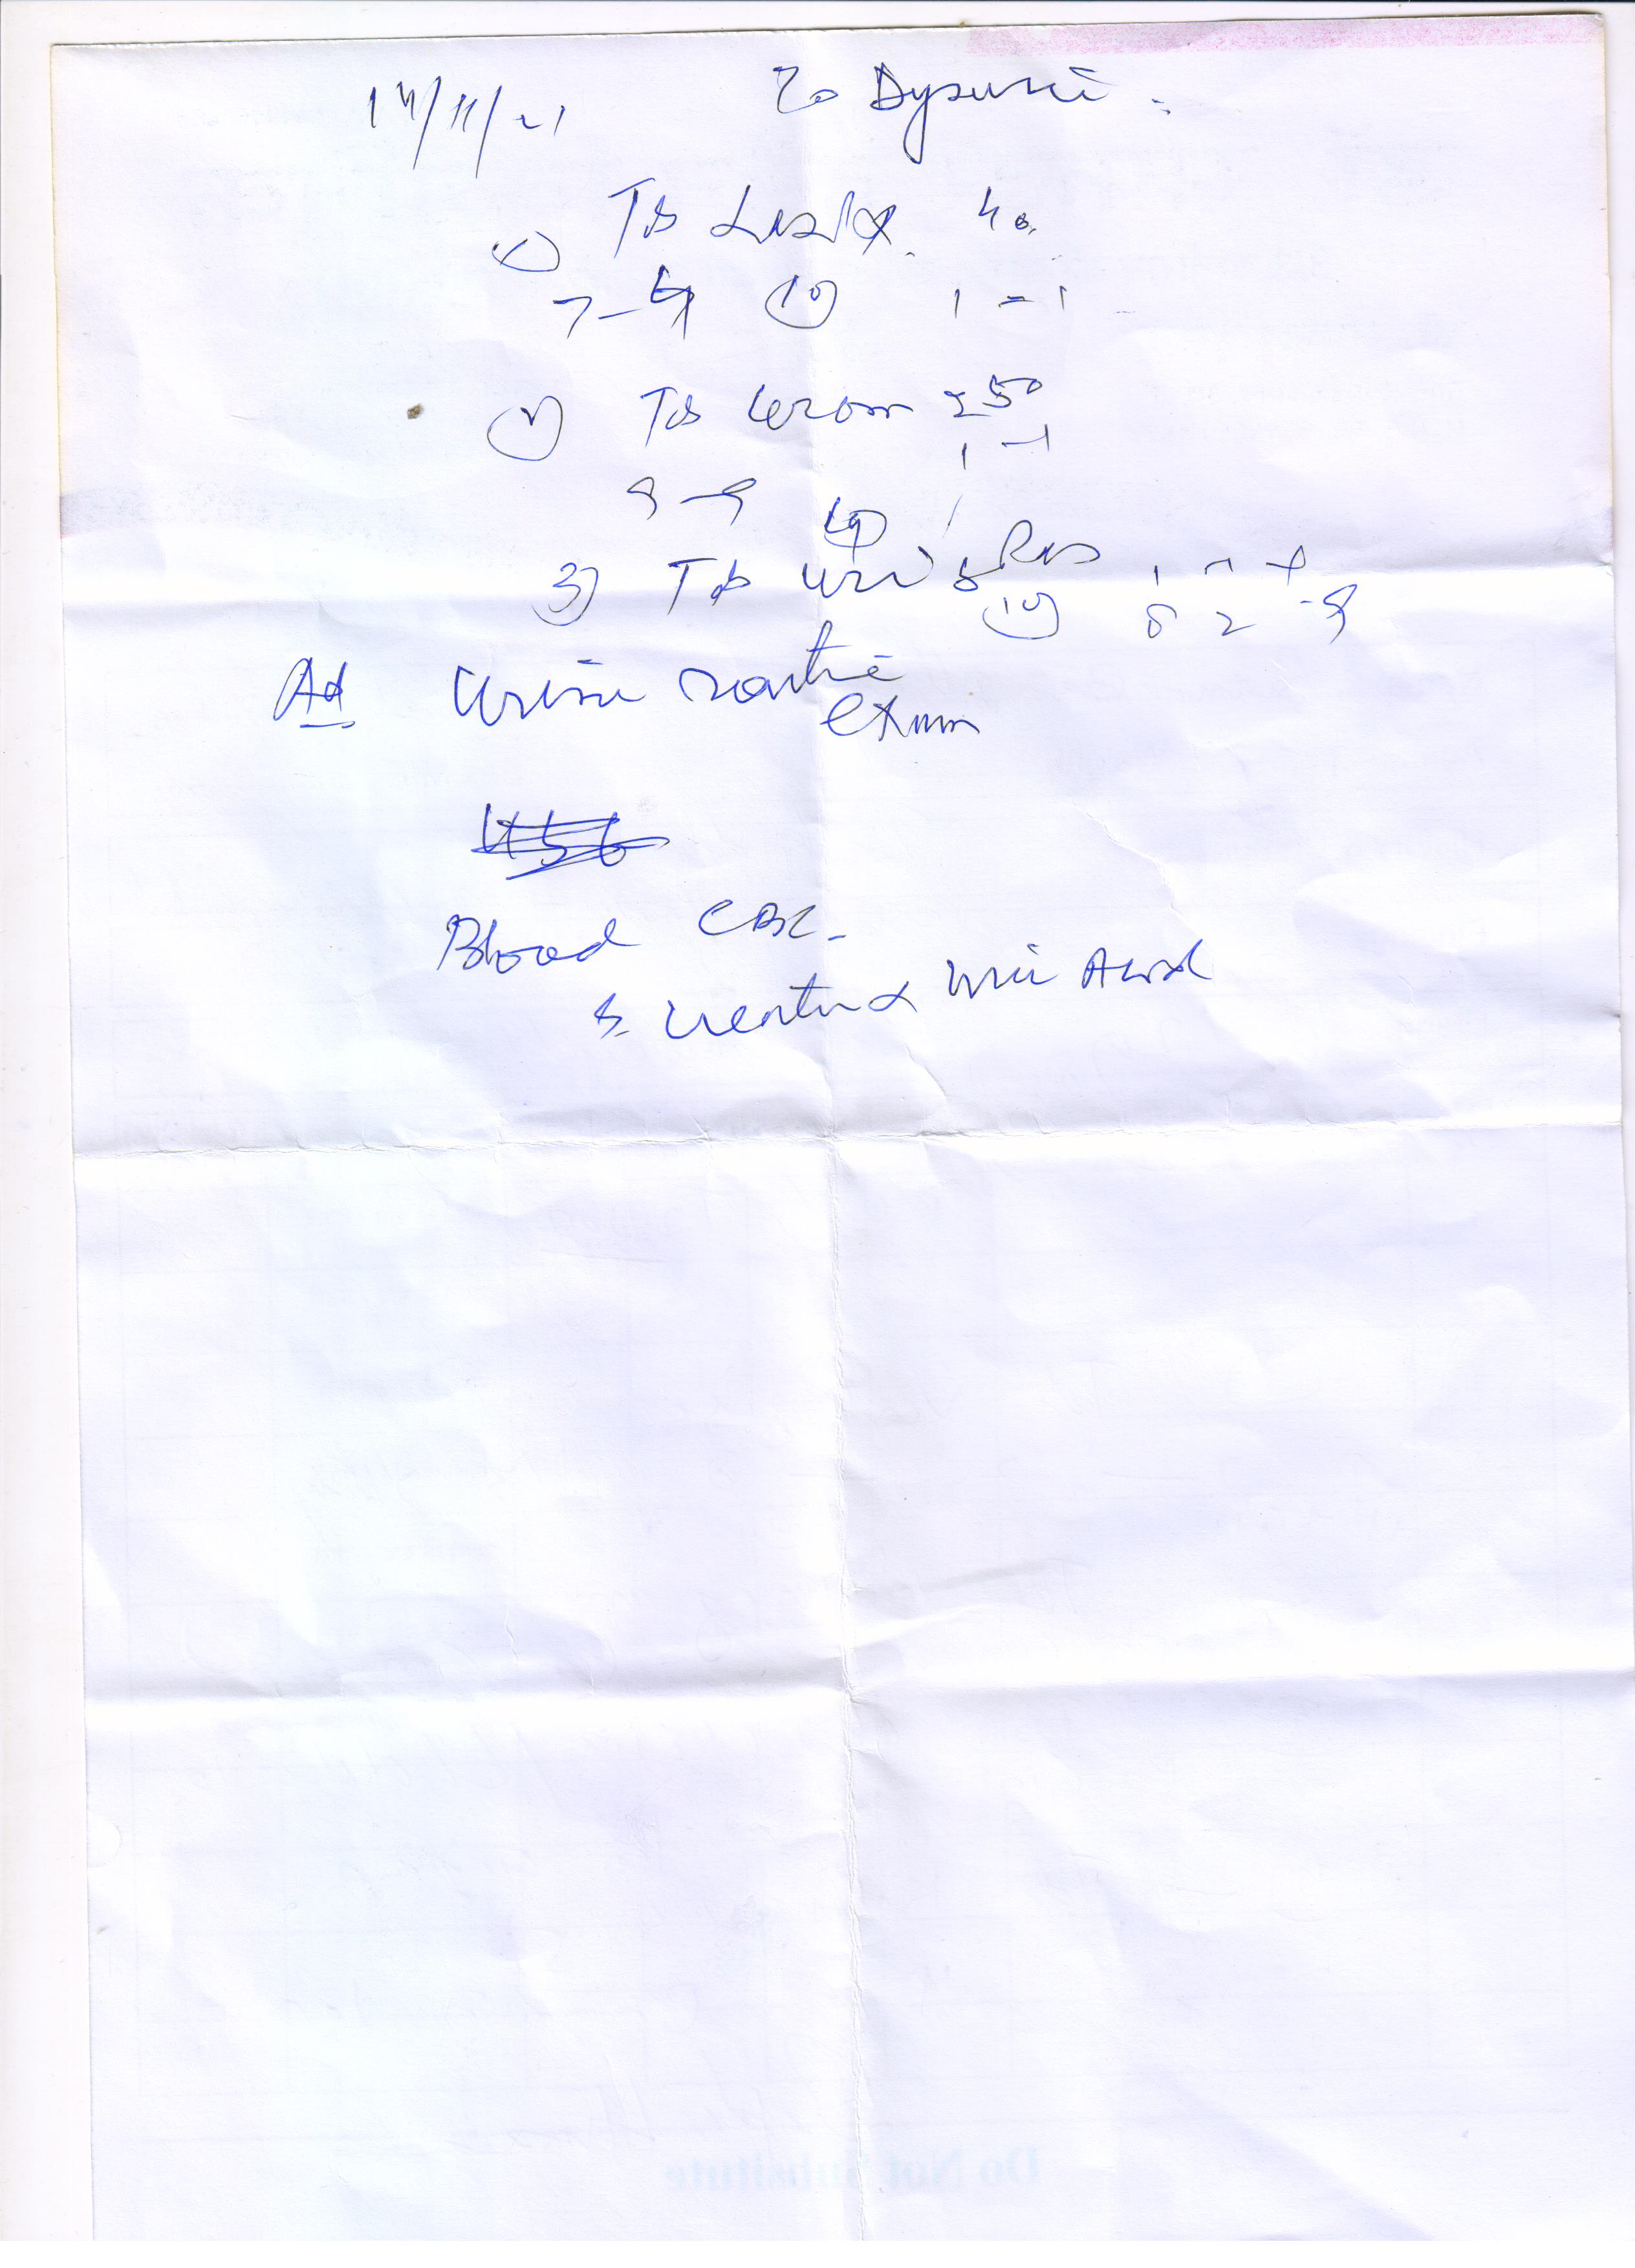 14/11/21 C/o Dysuria
1) Tab Lasix 40
7-4 (10) 1-1
2) Tab 250
1-1
9-9 (10)
3) Tab (10) 1 - 1 - 1
8 2 -9
Ad Urine routine
exam
USG
Blood CBC
S. Creatin & Uric Acid
Do Not Substitute